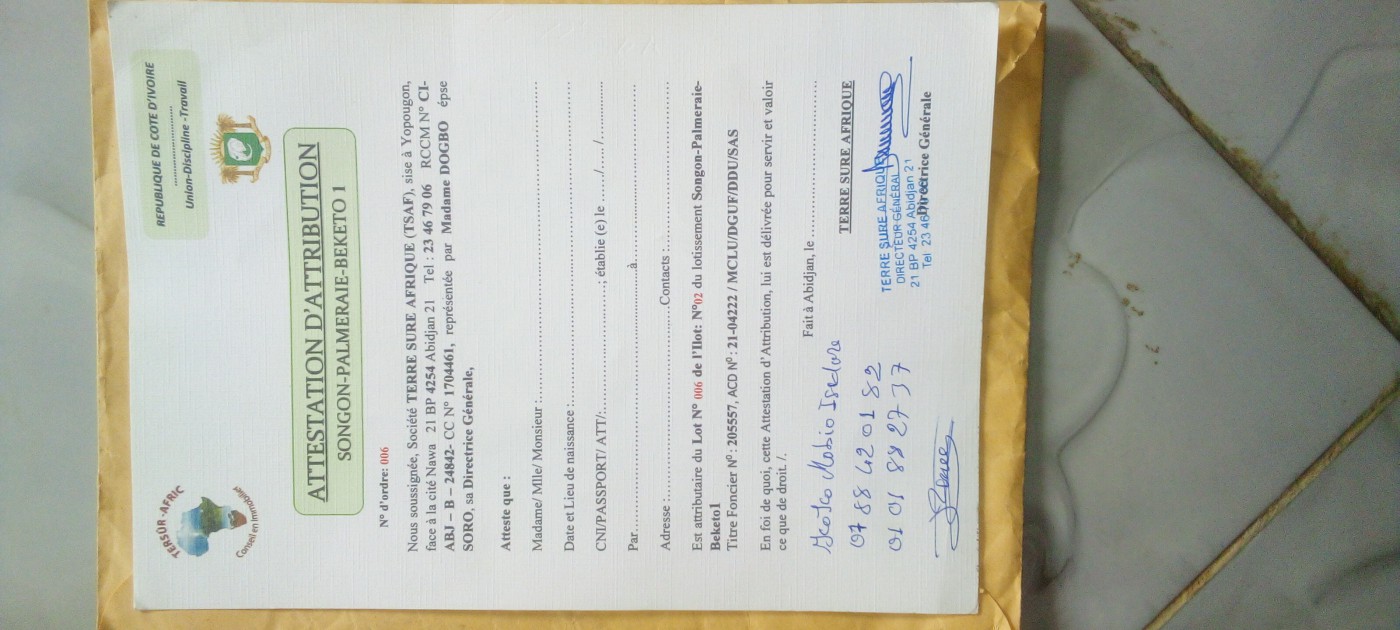 TERSUR-AFRIC
Conseil en Immobilier
REPUBLIQUE DE COTE D'IVOIRE
........................
Union-Discipline -Travail
ATTESTATION D'ATTRIBUTION
SONGON-PALMERAIE-BEKETO 1
N° d'ordre: 006
Nous soussignée, Société TERRE SURE AFRIQUE (TSAF), sise à Yopougon,
face à la cité Nawa 21 BP 4254 Abidjan 21 Tel : 23 46 79 06 RCCM N° CI-
ABJ – B – 24842- CC N° 1704461, représentée par Madame DOGBO épse
SORO, sa Directrice Générale,
Atteste que :
Madame/ Mlle/ Monsieur :...............
Date et Lieu de naissance :...............
CNI/PASSPORT/ ATT/:...............; établie (e) le ....../...../...............
Par...............à...............
Adresse :...............Contacts :...............
Est attributaire du Lot N° 006 de l'Ilot: N°02 du lotissement Songon-Palmeraie-
Beketo1
Titre Foncier N° : 205557, ACD N° : 21-04222 / MCLU/DGUF/DDU/SAS
En foi de quoi, cette Attestation d'Attribution, lui est délivrée pour servir et valoir
ce que de droit. /.
Fait à Abidjan, le ...............
TERRE SURE AFRIQUE
TERRE SURE AFRIQUE
DIRECTEUR GÉNÉRAL
21 BP 4254 Abidjan 21
Tel : 23 46
Directrice Générale
Mobio Isidore
07 88 42 01 82
01 01 88 27 37